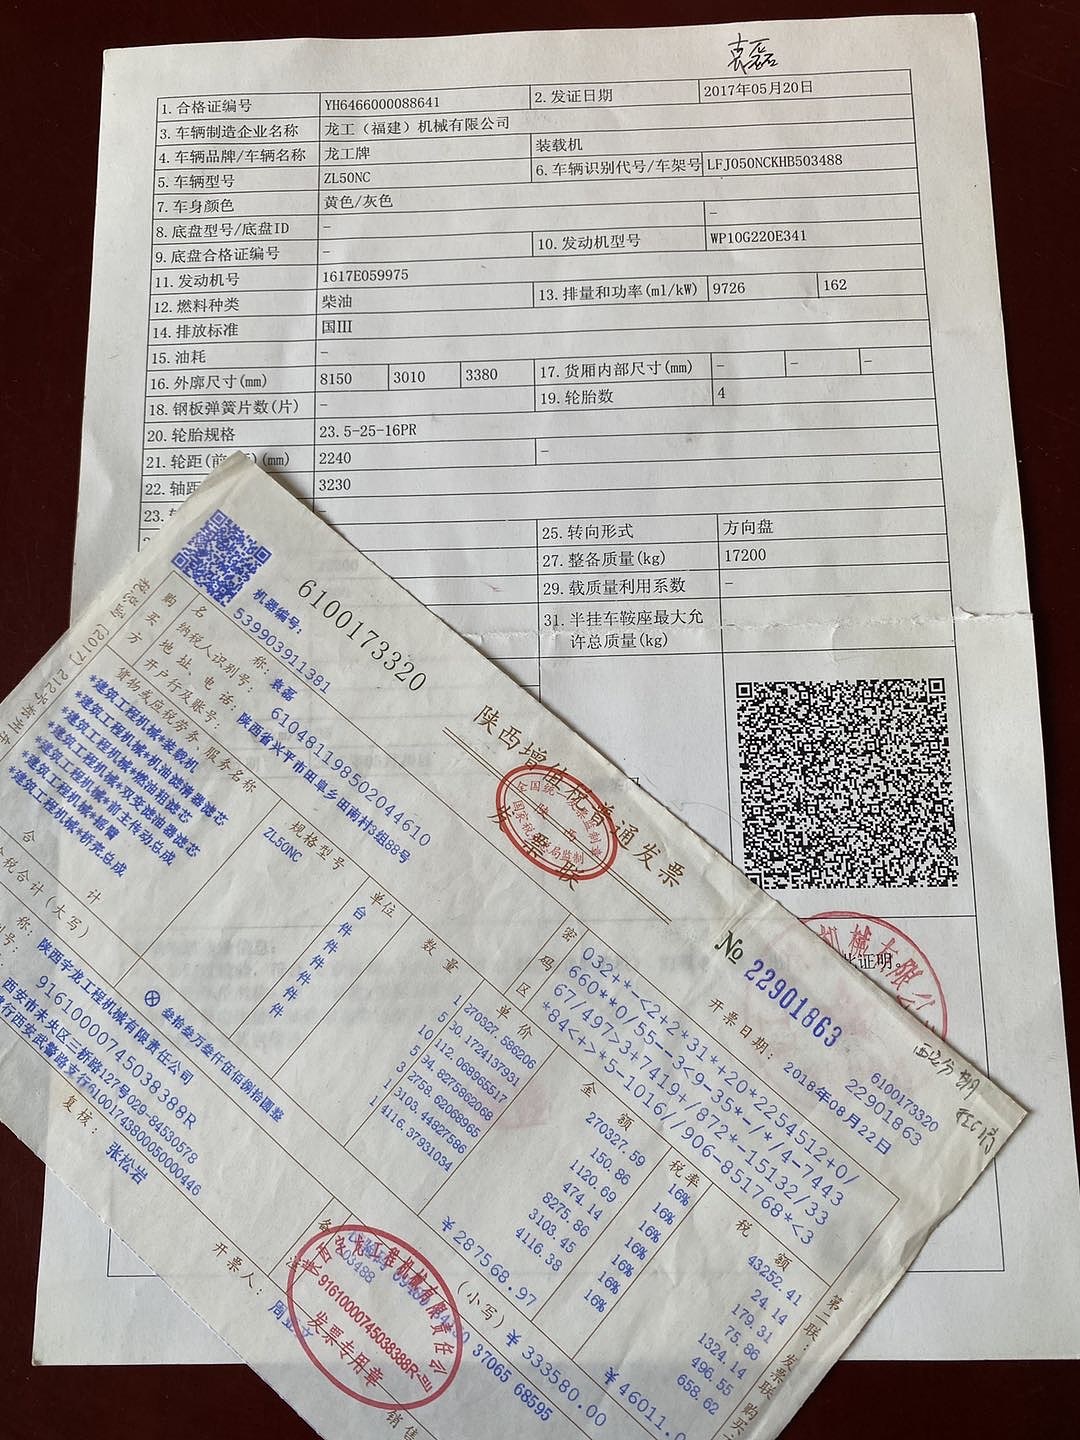 袁磊
1. 合格证编号 YH6466000088641 2. 发证日期 2017年05月20日
3. 车辆制造企业名称 龙工（福建）机械有限公司
4. 车辆品牌/车辆名称 龙工牌 装载机
5. 车辆型号 ZL50NC 6. 车辆识别代号/车架号 LFJ050NCKHB503488
7. 车身颜色 黄色/灰色
8. 底盘型号/底盘ID - -
9. 底盘合格证编号 - 10. 发动机型号 WP10G220E341
11. 发动机号 1617E059975
12. 燃料种类 柴油 13. 排量和功率(ml/kW) 9726 162
14. 排放标准 国III
15. 油耗 -
16. 外廓尺寸(mm) 8150 3010 3380 17. 货厢内部尺寸(mm) - - -
18. 钢板弹簧片数(片) - 19. 轮胎数 4
20. 轮胎规格 23.5-25-16PR
21. 轮距(前 (mm) 2240 -
22. 轴距 3230
23. -
25. 转向形式 方向盘
27. 整备质量(kg) 17200
29. 载质量利用系数 -
31. 半挂车鞍座最大允
许总质量(kg)
机械有限公
此证明。
6100173320
陕西增值税普通发票
发票联
全国统一发票监制章
陕西
国家税务局监制
№ 22901863
6100173320
22901863
开票日期: 2018年08月22日
机器编号:
539903911381
购买方
名 称: 袁磊
纳税人识别号: 610481198502044610
地址、电话: 陕西省兴平市田阜乡田南村3组88号
开户行及账号:
密码区
032+*-<2+2*31*+20*2254512+0/
660**0/55--3<9-35*-/*/4-7443
67/497>3+7419+/872*-15132/33
*84<+>*5-1016//906-851768*<3
货物或应税劳务、服务名称 规格型号 单位 数量 单价 金额 税率 税额
*建筑工程机械*装载机 ZL50NC 台 1 270327.586206 270327.59 16% 43252.41
*建筑工程机械*机油滤清器滤芯 件 5 30.1724137931 150.86 16% 24.14
*建筑工程机械*燃油粗滤芯 件 10 112.068965517 1120.69 16% 179.31
*建筑工程机械*双变滤油器滤芯 件 5 94.8275862068 474.14 16% 75.86
*建筑工程机械*摇臂 件 3 2758.62068965 8275.86 16% 1324.14
*建筑工程机械*前主传动总成 件 1 3103.44827586 3103.45 16% 496.55
*建筑工程机械*桥壳总成 件 1 4116.37931034 4116.38 16% 658.62
合 计 ¥287568.97 ¥46011.0
税合计(大写) ⊗叁拾叁万叁仟伍佰捌拾圆整 (小写) ¥333580.00
称: 陕西宇龙工程机械有限责任公司
号: 91610000745038388R
西安市未央区三桥路127号029-84530578
行西安武警路支行61001743800050000446
复核: 张松岩
开票人:
503488
37065 68595
91610000745038388R
发票专用章
销售
第二联:发票联 购买